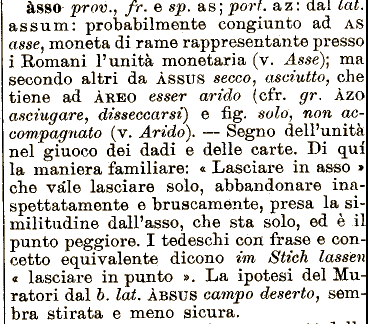 àsso prov., fr. e sp. as; port. az: dal lat.
assum: probabilmente congiunto ad AS
asse, moneta di rame rappresentante presso
i Romani l'unità monetaria (v. Asse); ma
secondo altri da ÀSSUS secco, asciutto, che
tiene ad ÀREO esser arido (cfr. gr. ÀZO
asciugare, disseccarsi) e fig. solo, non ac-
compagnato (v. Arido). — Segno dell'unità
nel giuoco dei dadi e delle carte. Di quí
la maniera familiare: « Lasciare in asso »
che vále lasciare solo, abbandonare ina-
spettatamente e bruscamente, presa la si-
militudine dall'asso, che sta solo, ed è il
punto peggiore. I tedeschi con frase e con-
cetto equivalente dicono im Stich lassen
« lasciare in punto ». La ipotesi del Mu-
ratori dal b. lat. ÀBSUS campo deserto, sem-
bra stirata e meno sicura.